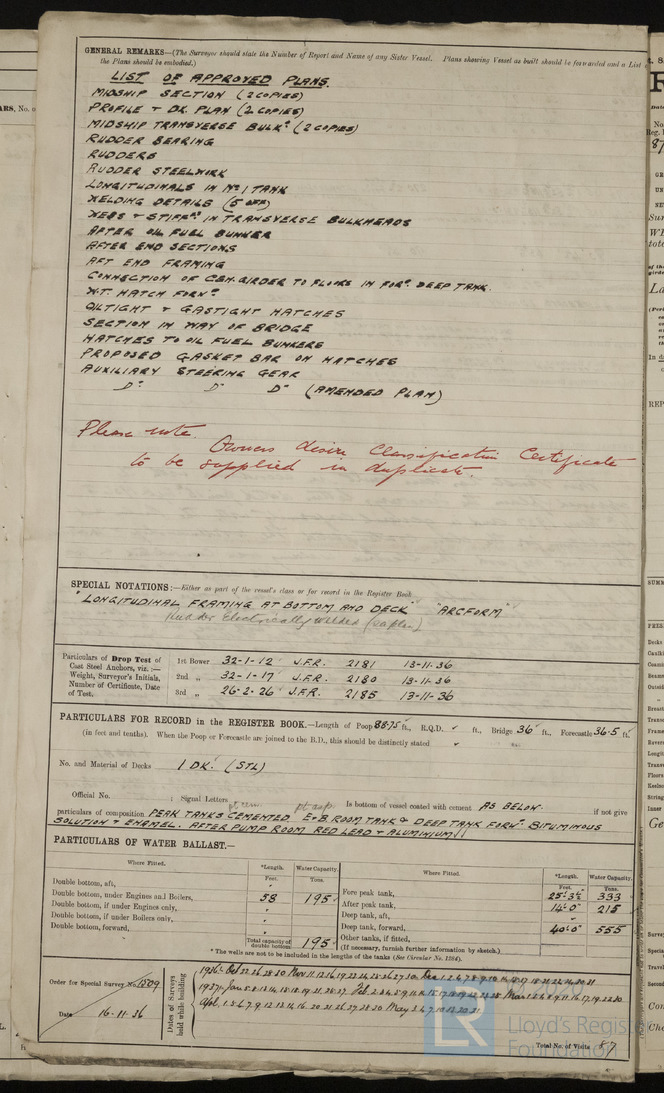 GENERAL REMARKS—(The Surveyor should state the Number of Report and Name of any Sister Vessel. Plans showing Vessel as built should be forwarded and a List
the Plans should be embodied.)
LIST OF APPROVED PLANS.
MIDSHIP SECTION (2 COPIES)
PROFILE & DK. PLAN (2 COPIES)
MIDSHIP TRANSVERSE BULKD (2 COPIES)
RUDDER BEARING
RUDDERS
RUDDER STEELWORK
LONGITUDINALS IN No 1 TANK
WELDING DETAILS (5 OFF)
WEBS & STIFFRS IN TRANSVERSE BULKHEADS
AFTER OIL FUEL BUNKER
AFTER END SECTIONS
AFT END FRAMING
CONNECTION OF CEN. GIRDER TO FLOORS IN FORD DEEP TANK.
W.T. HATCH FORWD
OILTIGHT & GASTIGHT HATCHES
SECTION IN WAY OF BRIDGE
HATCHES TO OIL FUEL BUNKERS
PROPOSED GASKET BAR ON HATCHES
AUXILIARY STEERING GEAR
Do Do Do (AMENDED PLAN)
Please note.
Owners desire Classification Certificate
to be supplied in duplicate.
SPECIAL NOTATIONS:—Either as part of the vessel's class or for record in the Register Book
"LONGITUDINAL FRAMING AT BOTTOM AND DECK" "ARCFORM"
Rudder Electrically welded
Particulars of Drop Test of Cast Steel Anchors, viz.:— Weight, Surveyor's Initials, Number of Certificate, Date of Test.
1st Bower 32-1-12 J.F.R. 2181 13-11-36
2nd „ 32-1-17 J.F.R. 2180 13-11-36
3rd „ 26-2-26 J.F.R. 2185 13-11-36
PARTICULARS FOR RECORD in the REGISTER BOOK.—Length of Poop 88.75 ft., R.Q.D. ft., Bridge 36 ft., Forecastle 36.5 ft.
(in feet and tenths). When the Poop or Forecastle are joined to the B.D., this should be distinctly stated
No. and Material of Decks 1 DK. (STL)
Official No. ; Signal Letters Is bottom of vessel coated with cement AS BELOW. if not give
particulars of composition PEAK TANKS CEMENTED. E & B ROOM TANK & DEEP TANK FORWD BITUMINOUS
SOLUTION & ENAMEL. AFTER PUMP ROOM RED LEAD & ALUMINIUM
PARTICULARS OF WATER BALLAST.—
Where Fitted. *Length. Feet. Water Capacity. Tons. Where Fitted. *Length. Feet. Water Capacity. Tons.
Double bottom, aft,
Double bottom, under Engines and Boilers, 58 195
Double bottom, if under Engines only,
Double bottom, if under Boilers only,
Double bottom, forward,
Total capacity of double bottom 195
Fore peak tank, 25'-3½" 333
After peak tank, 14'-0" 215
Deep tank, aft,
Deep tank, forward, 40'-0" 555
Other tanks, if fitted,
(If necessary, furnish further information by sketch.)
* The wells are not to be included in the lengths of the tanks (See Circular No. 1284).
Order for Special Survey No. 1509
Date 16-11-36
Dates of Surveys held while building
Total No. of Visits 87
LR Lloyd's Register
Foundation